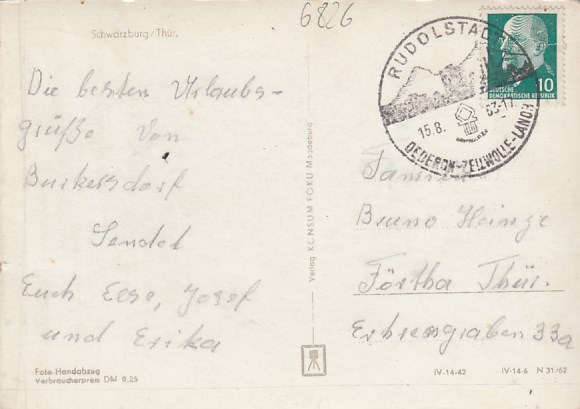 6826
Schwarzburg/Thür.
RUDOLSTADT
15.8. 63-17
DEDERON-ZELLWOLLE-LANON
10
DEUTSCHE
DEMOKRATISCHE REPUBLIK
Die besten Urlaubs-
grüße von
Burkersdorf
Sendet
Euch Else, Josef
und Erika
Familie
Bruno Heinze
Förtha Thür.
Ehrensgraben 33a
Verlag KONSUM FOKU Magdeburg
Foto-Handabzug
Verbraucherpreis DM 0,25
IV-14-42 IV-14-6 N 31/62